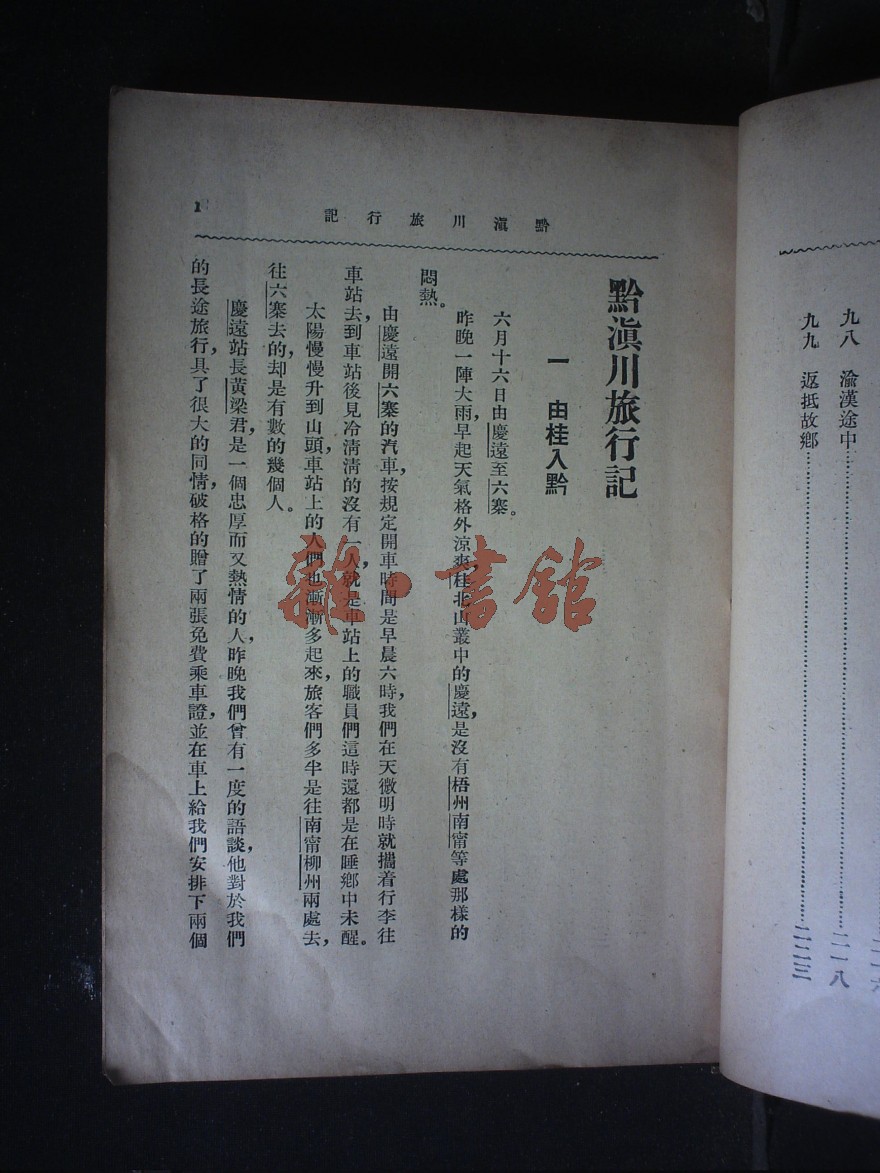 九八　渝漢途中……二一八
九九　返抵故鄉……二二三
黔滇川旅行記
1
黔滇川旅行記
一　由桂入黔
六月十六日由慶遠至六寨。
昨晚一陣大雨，早起天氣格外涼爽，桂北山叢中的慶遠，是沒有梧州南甯等處那樣的
悶熱。
由慶遠開六寨的汽車，按規定開車時間是早晨六時，我們在天微明時就攜着行李往
車站去，到車站後見冷清清的沒有一人，就是車站上的職員們這時還都是在睡鄉中未醒。
太陽慢慢升到山頭，車站上的人們也漸漸多起來，旅客們多半是往南甯柳州兩處去，
往六寨去的，却是有數的幾個人。
慶遠站長黃梁君，是一個忠厚而又熱情的人，昨晚我們曾有一度的語談，他對於我們
的長途旅行，具了很大的同情，破格的贈了兩張免費乘車證，並在車上給我們安排下兩個
雜·書館